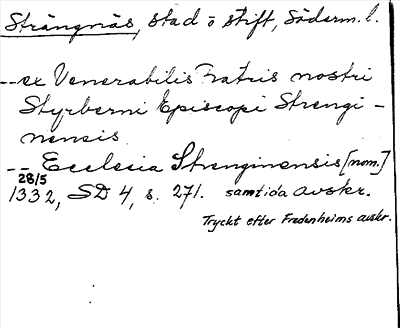 Strängnäs, stad o stift, Söderm. l.
-- ex Venerabilis Fratris nostri
Styrberni Episcopi Strengi-
nensis
-- Ecclesia Strenginensis [nom.]
28/5
1332, SD 4, s. 271. samtida avskr.
Tryckt efter Fredenheims avskr.